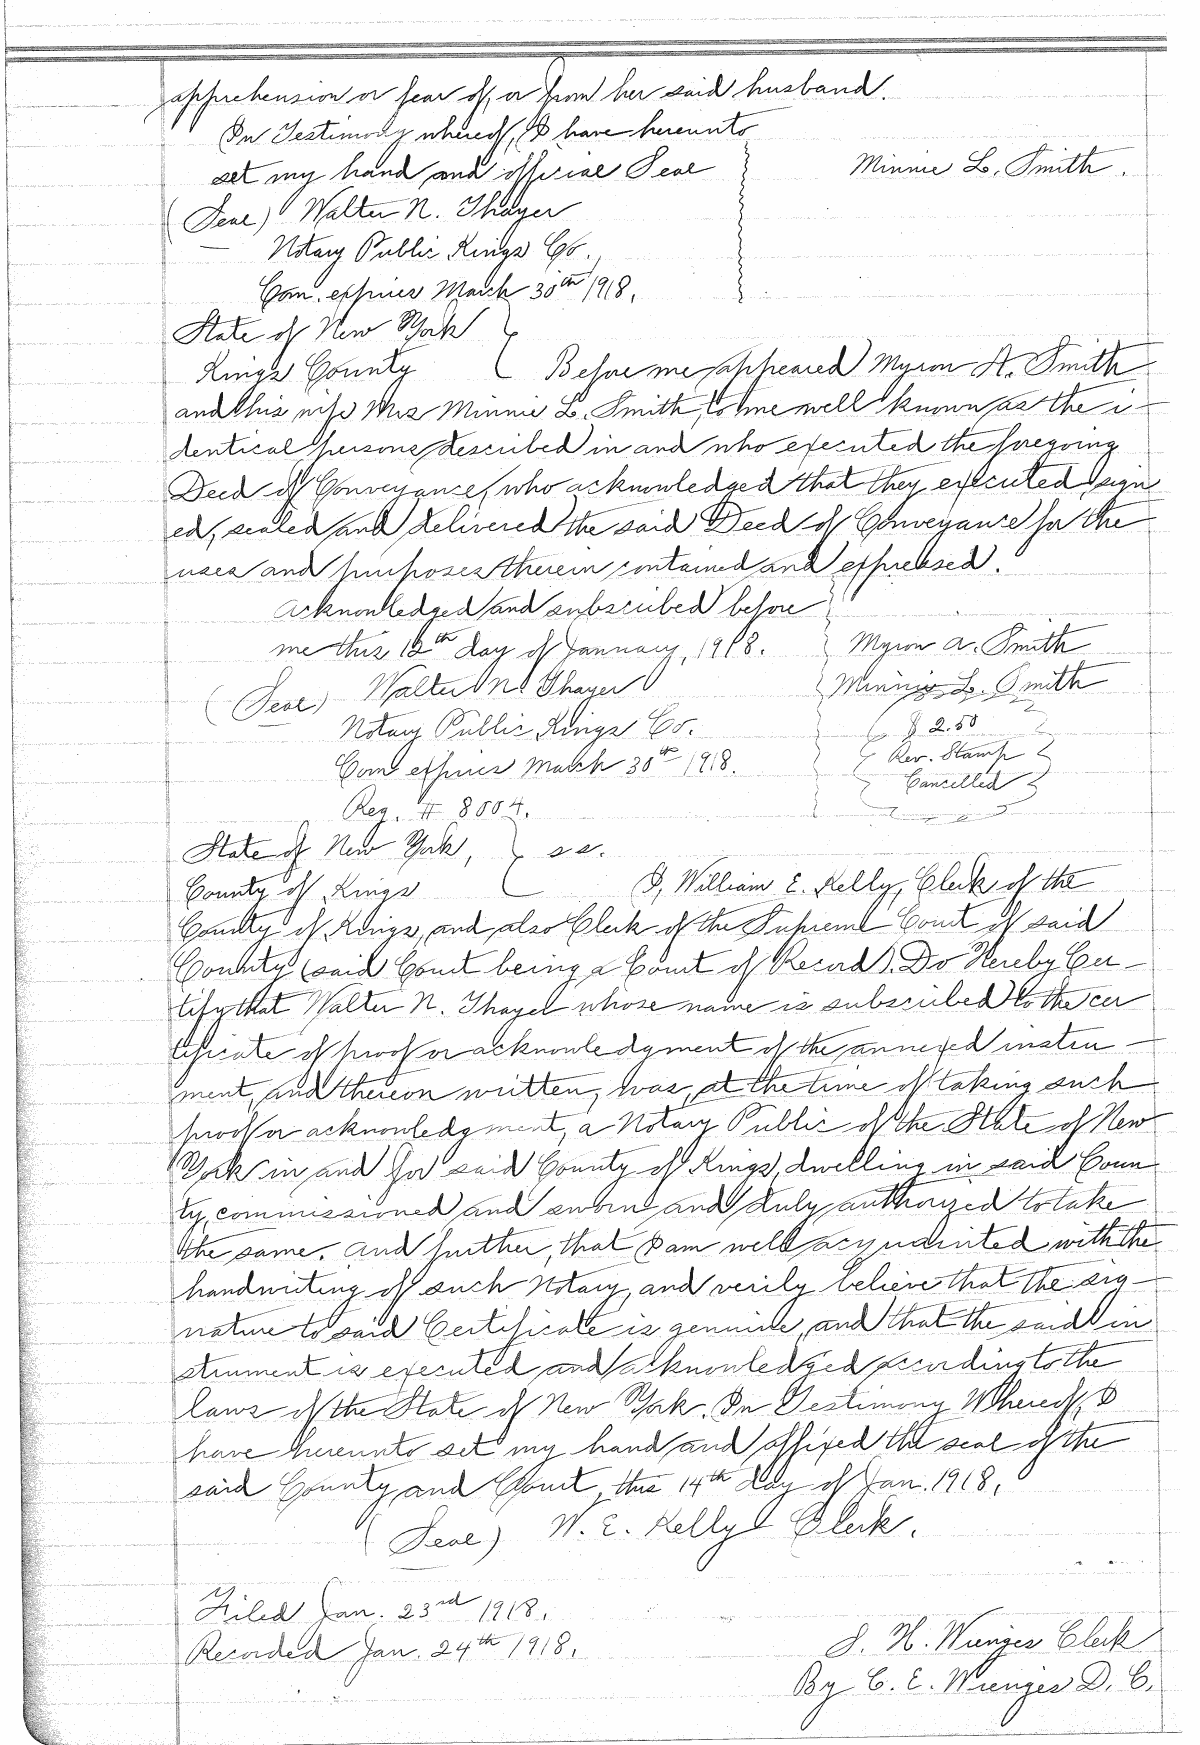 apprehension or fear of, or from her said husband.
In Testimony whereof, I have hereunto
set my hand and official Seal
Minnie L. Smith.
(Seal) Walter N. Thayer
Notary Public Kings Co.
Com. expires March 30th 1918.
State of New York
Kings County Before me appeared Myron A. Smith
and his wife Mrs Minnie L. Smith, to me well known as the i-
dentical persons described in and who executed the foregoing
Deed of Conveyance, who acknowledged that they executed, sign
ed, sealed and delivered the said Deed of Conveyance for the
uses and purposes therein contained and expressed.
Acknowledged and subscribed before
me this 12th day of January, 1918. Myron A. Smith
(Seal) Walter N. Thayer Minnie L. Smith
Notary Public Kings Co. $ 2.50
Com expires March 30th 1918. Rev. Stamp
Cancelled
Reg. # 8004.
State of New York, ss.
County of Kings I, William E. Kelly, Clerk of the
County of Kings, and also Clerk of the Supreme Court of said
County (said Court being a Court of Record). Do Hereby Cer-
tify that Walter N. Thayer whose name is subscribed to the cer
tificate of proof or acknowledgment of the annexed instru-
ment, and thereon written, was, at the time of taking such
proof or acknowledgment, a Notary Public of the State of New
York in and for said County of Kings, dwelling in said Coun
ty, commissioned and sworn and duly authorized to take
the same. And further, that I am well acquainted with the
handwriting of such Notary, and verily believe that the sig-
nature to said Certificate is genuine, and that the said in
strument is executed and acknowledged according to the
laws of the State of New York. In Testimony Whereof, I
have hereunto set my hand and affixed the seal of the
said County and Court, this 14th day of Jan. 1918.
(Seal) W. E. Kelly Clerk.
Filed Jan. 23rd 1918.
Recorded Jan. 24th 1918.
J. H. Wienges Clerk
By C. E. Wienges D. C.